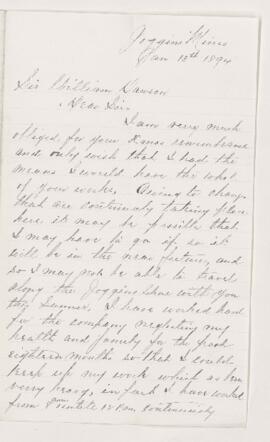 Joggins Mines
Jan 13th 1894
Sir William Dawson
Dear Sir
I am very much
obliged for your Xmas remembrance
and only wish that I had the
means I would have the whole
of your works. Owing to changes
that are continualy taking place
here it may be possible that
I may have to go if so it
will be in the near future, and
so I may not be able to travel
along the Joggins Shore with you
this Summer. I have worked hard
for the company neglecting my
health and family for the past
eighteen months so that I could
keep up my work which as been
very heavy, in fact I have worked
from 8am until 12 P.m. continuously